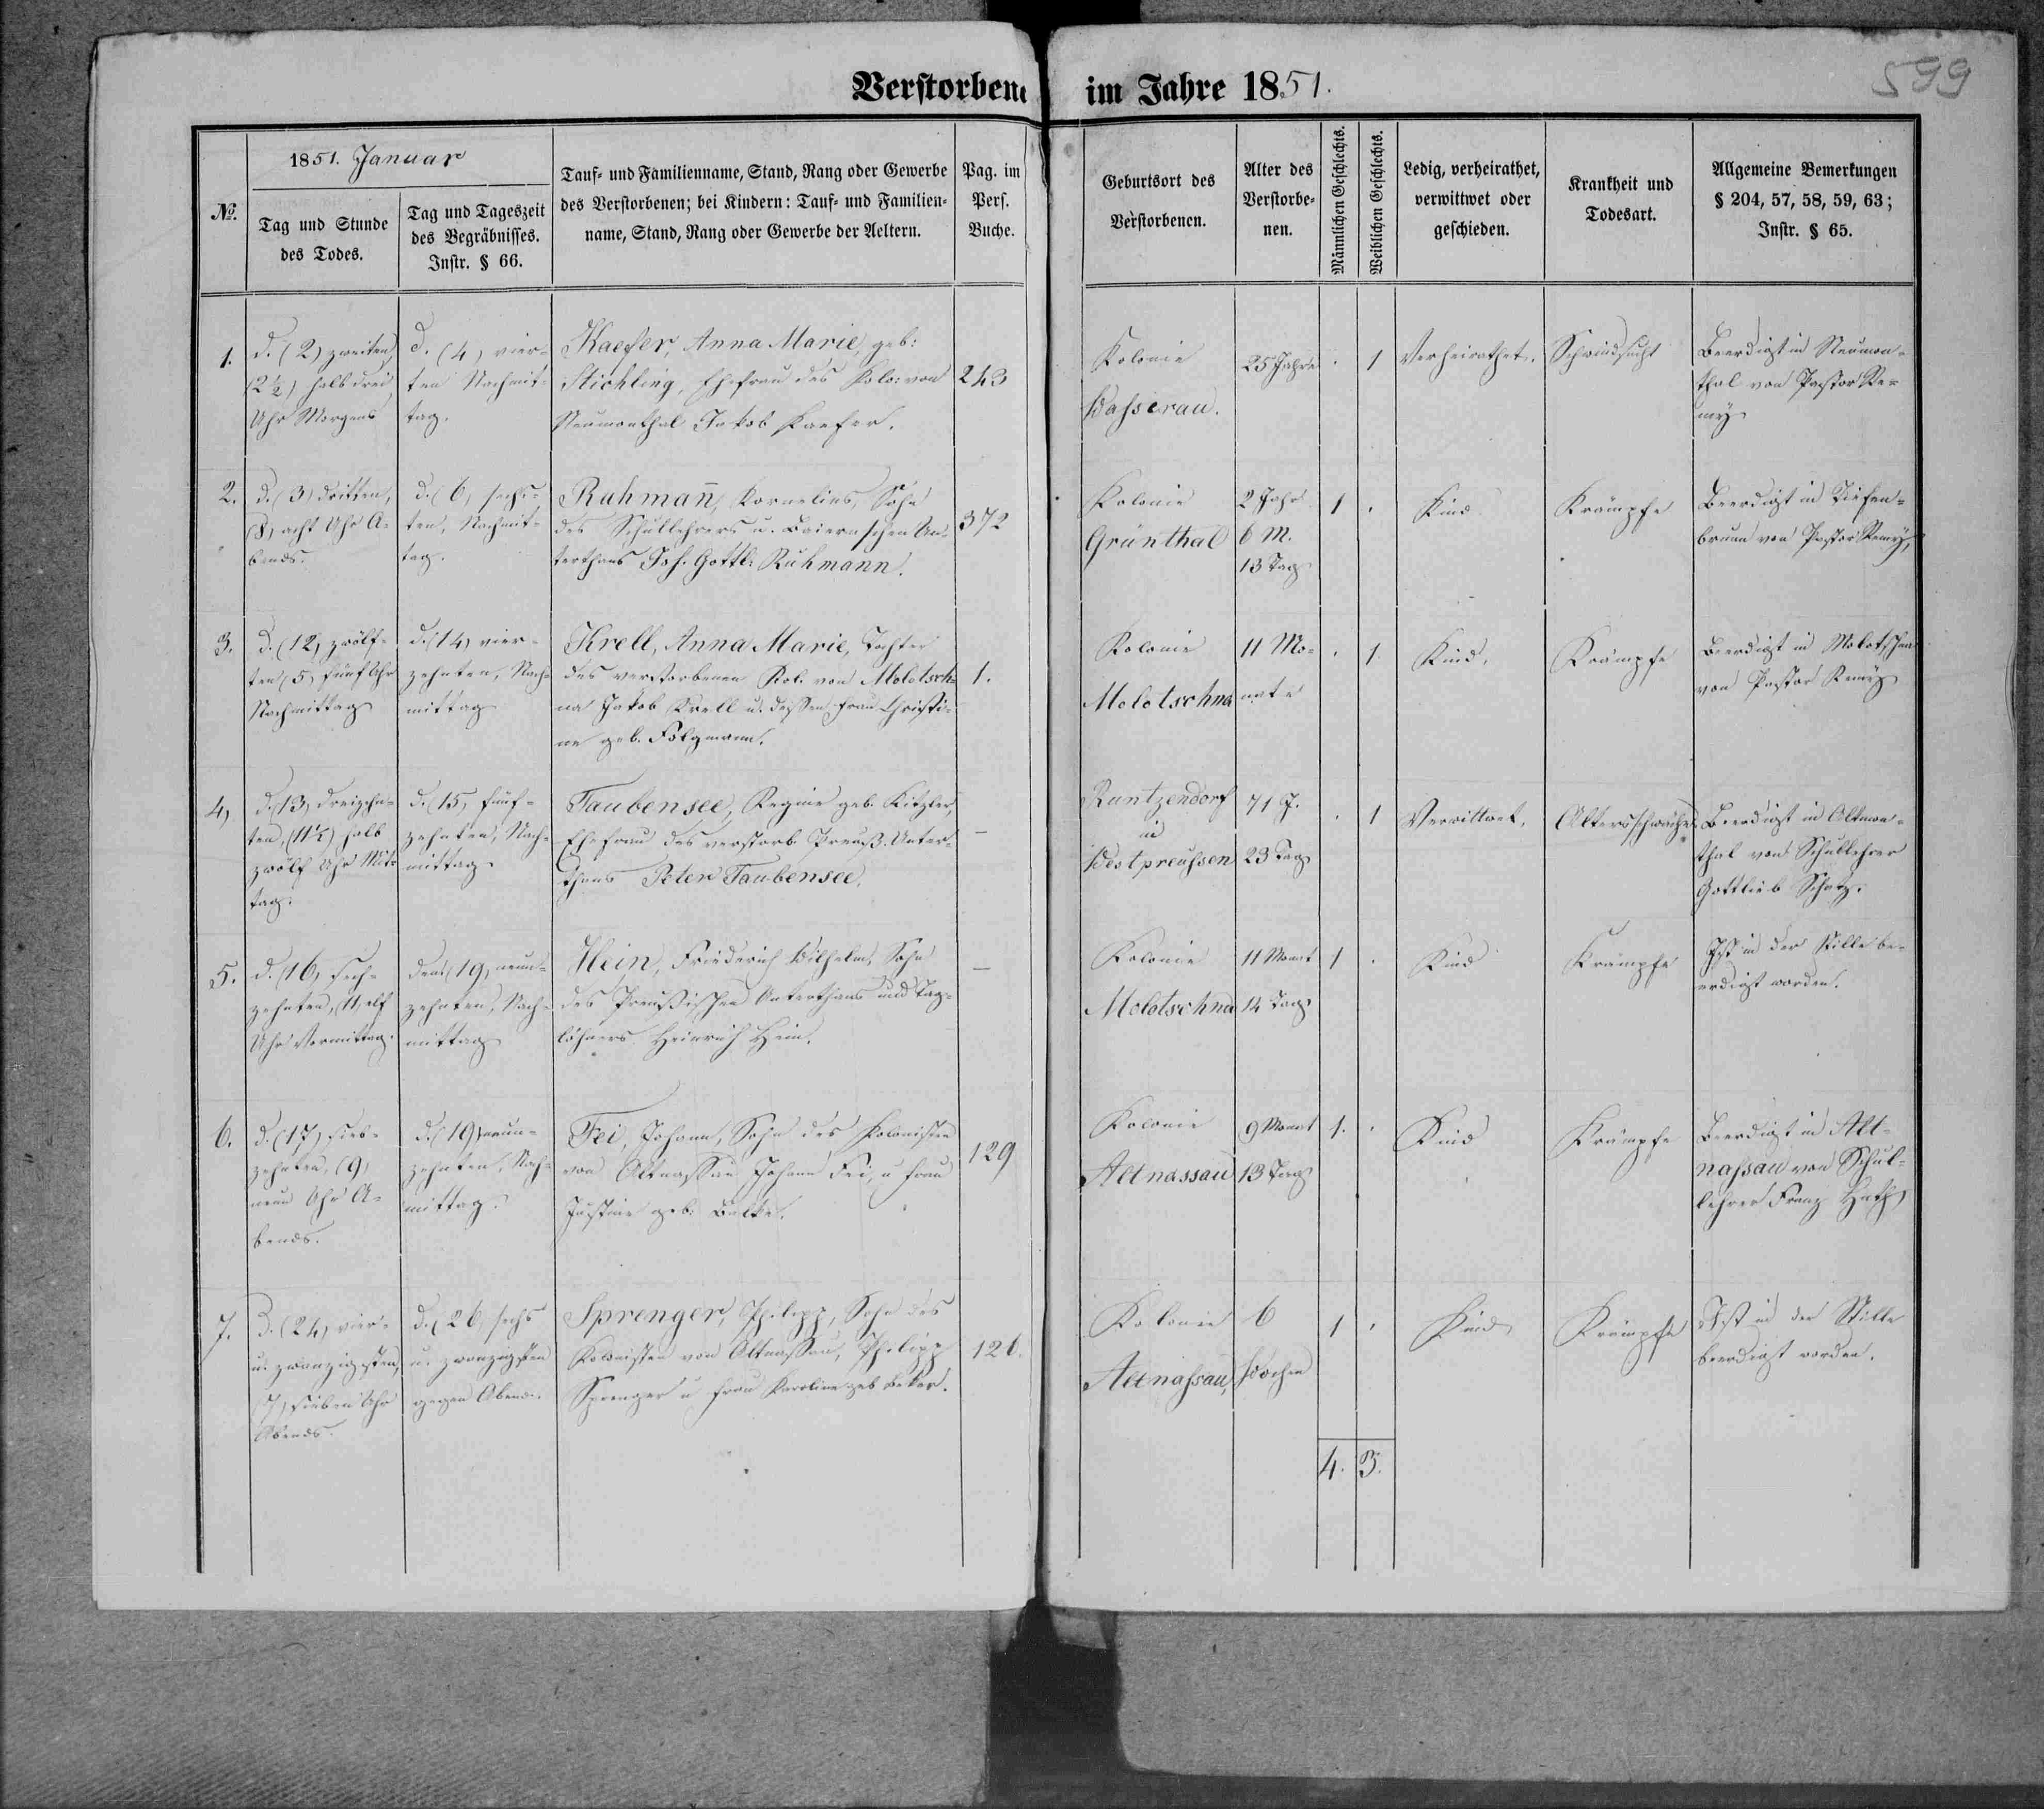 Verstorbene im Jahre 1851.
599
№.
1851. Januar
Tag und Stunde
des Todes.
Tag und Tageszeit
des Begräbnisses.
Instr. § 66.
Tauf- und Familienname, Stand, Rang oder Gewerbe
des Verstorbenen; bei Kindern: Tauf- und Familien-
name, Stand, Rang oder Gewerbe der Aeltern.
Pag. im
Pers.
Buche.
Geburtsort des
Verstorbenen.
Alter des
Verstorbe-
nen.
Männlichen Geschlechts.
Weiblichen Geschlechts.
Ledig, verheirathet,
verwittwet oder
geschieden.
Krankheit und
Todesart.
Allgemeine Bemerkungen
§ 204, 57, 58, 59, 63;
Instr. § 65.
1.
d. (2) zweiten
(2½) halb drei
Uhr Morgens
d. (4) vier-
ten Nachmit-
tag.
Kaefer, Anna Marie, geb:
Stichling, Ehefrau des Kolo: von
Neumonthal Jakob Kaefer.
243
Kolonie
Wasserau.
25 Jahre
.
1
Verheirathet.
Schwindsucht
Beerdigt in Neumon-
thal von Pastor Re-
my
2.
d. (3) dritten,
(8) acht Uhr A-
bends.
d. (6) sechs-
ten, Nachmit-
tag.
Ruhmañ, Kornelius, Sohn
des Schullehrers u. Baiernschen Un-
terthans Joh. Gottl: Ruhmann.
372
Kolonie
Grünthal
2 Jahr
6 M.
13 Tag
1
.
Kind
Krämpfe
Beerdigt in Tiefen-
brunn von Pastor Remy,
3.
d. (12) zwölf-
ten (5) fünf Uhr
Nachmittag
d. (14) vier-
zehnten, Nach-
mittag
Krell, Anna Marie, Tochter
des verstorbenen Kol. von Molotsch-
na Jakob Krell u. dessen Frau Christi-
ne geb. Folgmann.
1.
Kolonie
Molotschna
11 Mo-
nate
.
1.
Kind.
Krämpfe
Beerdigt in Molotschna
von Pastor Remy
4,
d. (13) dreizehn-
ten, (11½) halb
zwölf Uhr Mit-
tag.
d. (15) fünf-
zehnten, Nach-
mittag
Taubensee, Regine geb. Kitzler,
Ehefrau des verstorb. Preuß. Unter-
thans Peter Taubensee.
—
Runtzendorf
in
Westpreussen
71 J.
23 Tag
.
1
Verwittwet,
Altersschwäche
Beerdigt in Altmon-
thal von Schullehrer
Gottlieb Schatz.
5.
d. (16) sech-
zehnten, (11) elf
Uhr Vormittag.
den (19) neun-
zehnten, Nach-
mittag
Hein, Friederich Wilhelm, Sohn
des Preußischen Unterthans und Tag-
löhners Heinrich Hein.
—
Kolonie
Molotschna
11 Monat
14 Tag
1
.
Kind
Krämpfe
Ist in der Stille be-
erdigt worden.
6.
d. (17) sieb-
zehnten, (9)
neun Uhr A-
bends.
d. (19) neun-
zehnten, Nach-
mittag.
Fei, Johann, Sohn des Kolonisten
von Altnassau Johann Fei, u Frau
Justine geb: Bulke.
129
Kolonie
Altnassau
9 Monat
13 Tag
1.
.
Kind
Krämpfe
Beerdigt in Alt-
nassau von Schul-
lehrer Franz
7.
d. (24) vier-
u. zwanzigsten,
(7) sieben Uhr
Abends.
d. (26) sechs
u. zwanzigsten
gegen Abend.
Sprenger, Philipp, Sohn des
Kolonisten von Altnassau, Philipp
Sprenger u Frau Karoline geb Beker.
126.
Kolonie
Altnassau,
6
Wochen
1
.
Kind
Krämpfe
Ist in der Stille
beerdigt worden.
4. 3.